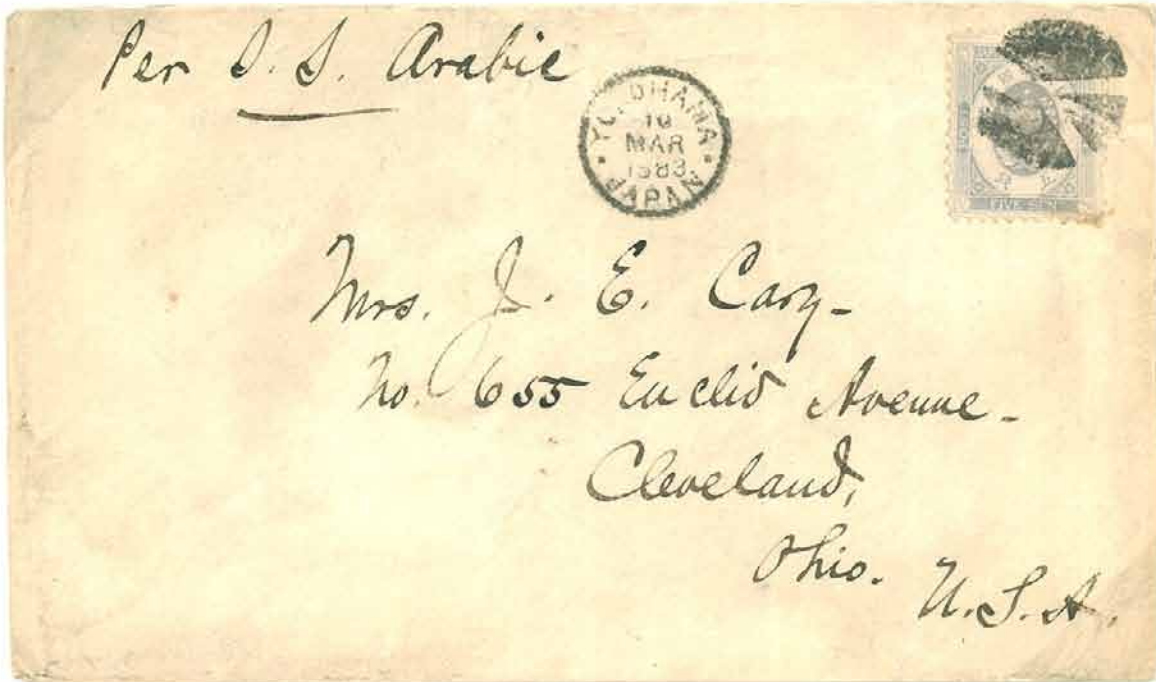 Per S. S. Arabic
YOKOHAMA
10
MAR
1883
JAPAN
FIVE SEN
Mrs. J. E. Cary-
No. 655 Euclid Avenue-
Cleveland,
Ohio. U.S.A.